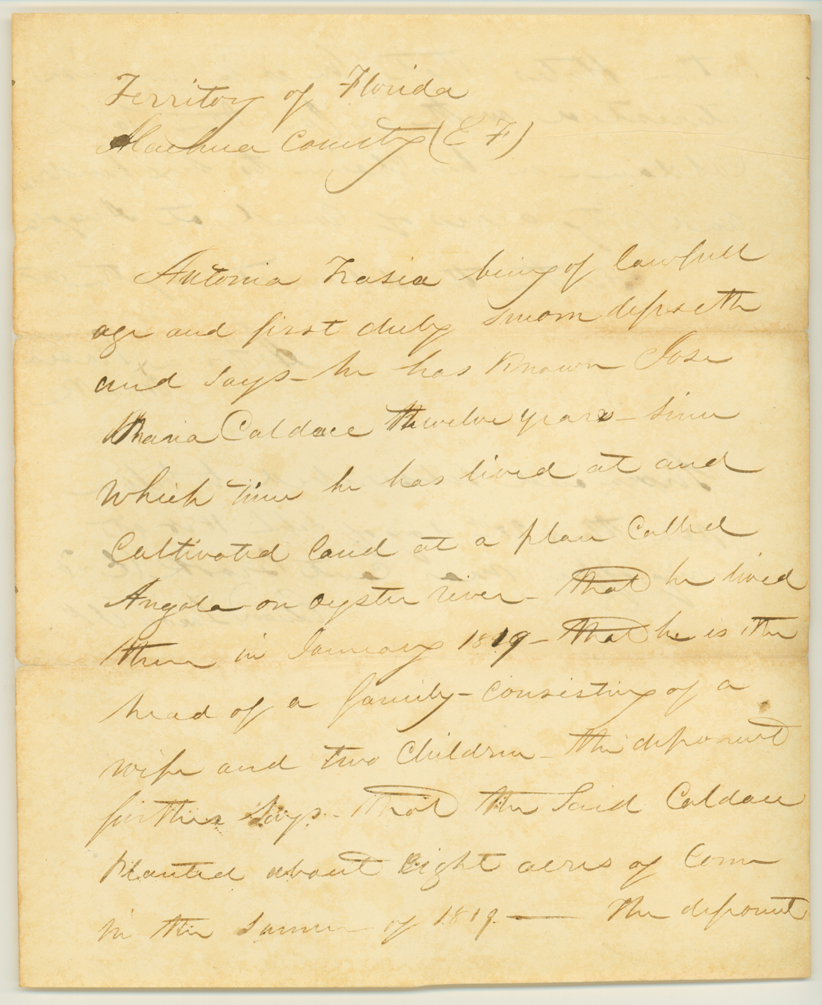 Territory of Florida
Alachua County (E F)
Antonia Frasia being of lawfull
age and first duly Sworn deposeth
and Says - he has Known Jose
Maria Caldace thwelve years - Since
Which time he has lived at and
Cultivated land at a place Called
Angola - on oyster river - that he lived
there in January 1819 - that he is the
head of a family - Consisting of a
wife and two Children - the deponent
further Says - that the Said Caldace
Planted about Eight acres of Corn
in the Same of 1819 — the deponent